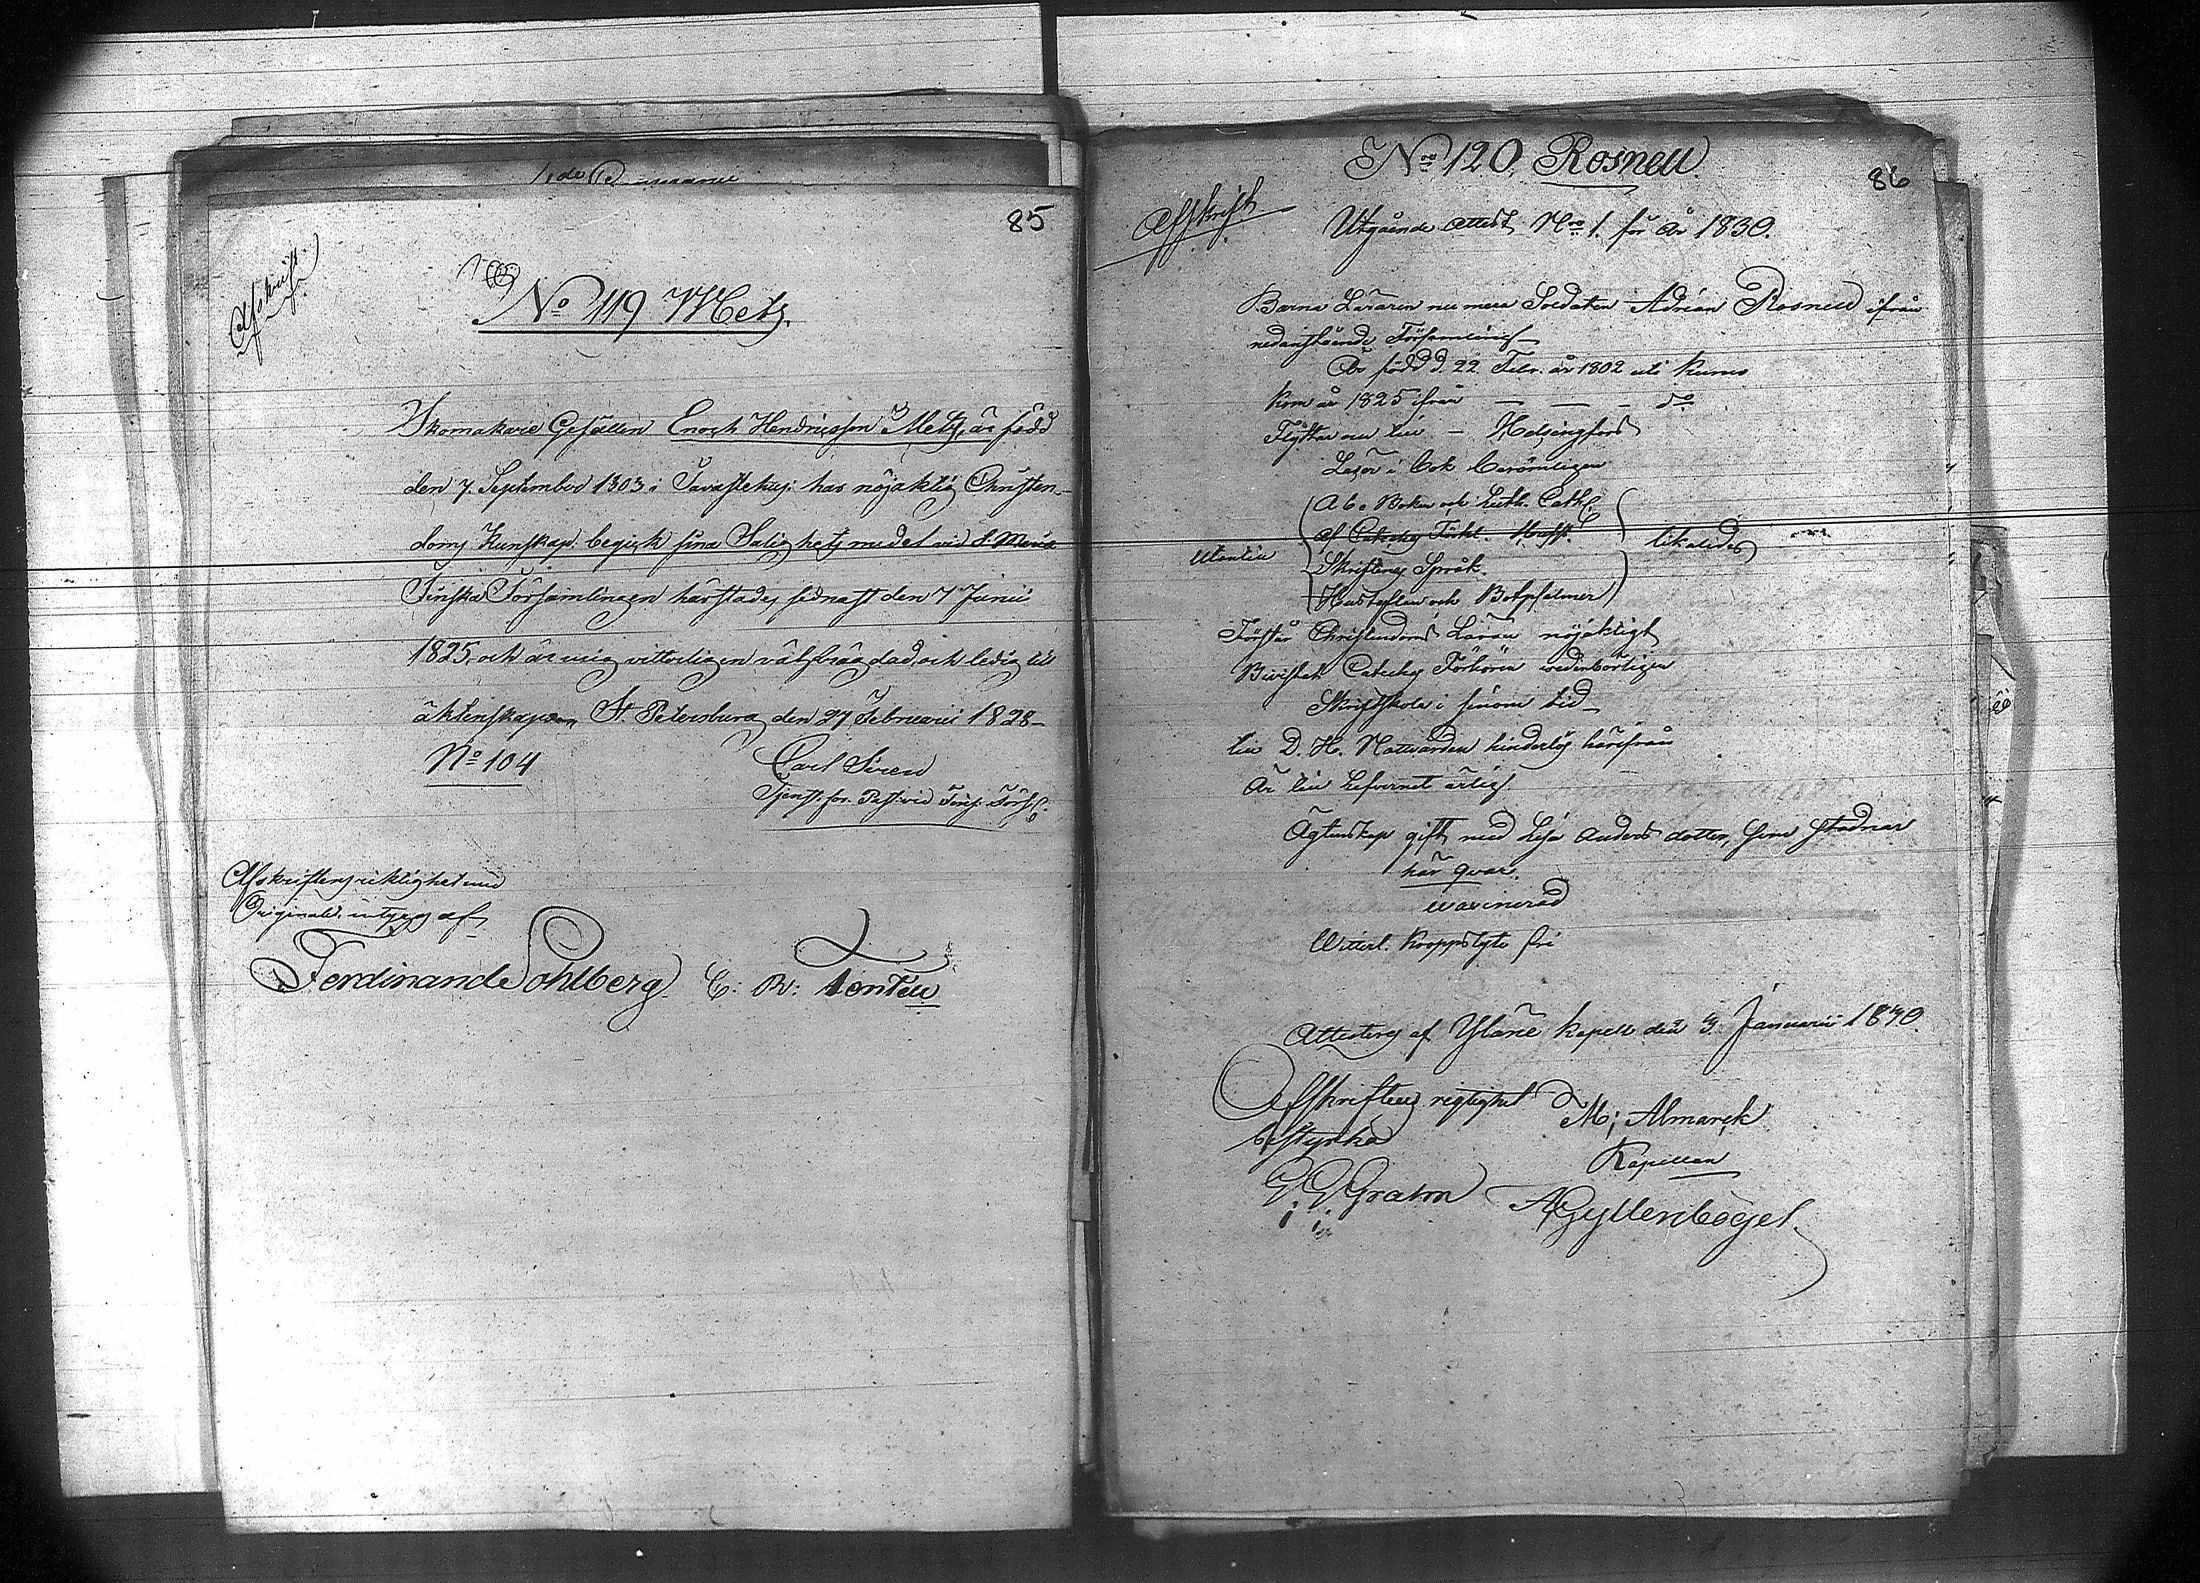 85
Afskrift.
No 119 Metz.
Skomakare Gesällen Enoch Hendricsson Metz, är född
den 7. September 1803 i Tavastehus: har nöjaktig Christen-
doms Kunskap. begick sina Salighets medel vid S. Maria
Finska Församlingen härstädes sednast den 7 Junii
1825, och är mig vitterligen välfrägdad, och ledig till
äktenskap. St. Petersburg den 27 Februarii 1828-
No 104
Carl Siren
Tjenst. för. Past. vid Finsk. Förs.
Afskriftens riktighet med
Originalet intyga af
Ferdinand Sohlberg C: R:
86
Afskrift
Nro 120. Rosnell.
Utgående Attest Nro 1. för år 1830.
Barna Läraren nu mera Soldaten Adrian Rosnell ifrån
nedanstående Församling
Är född d. 22 Febr. år 1802 uti Kumo
kom år 1825 ifrån — — - do
Flyttar nu till - Helsingfors
Läser i bok berömligen
Utantill
Abc Boken och Luth. Cath.
af Cateches Förkl.
Skriftenes Språk
Hustaflan och Botpsalmer
likaledes
Förstår Christendoms Läran nöjaktigt
Bivistat Cateches Förhören vederbörligen
Skriftskola i sinom tid
till D. H. Nattvarden hinderlös härifrån
Är till Lefvernet ärlig
Ägtenskap gift med Lisa Anders dotter, som stadnar
här qvar.
vaxinerad
Witterl. kroppslyte fri
Attesteras af Yläne kapell den 3 Januarii 1830.
Afskriftens rigtighet
bestyrka
M; Almark
Kapellan
G. G. Grahn A Gyllenbögel.